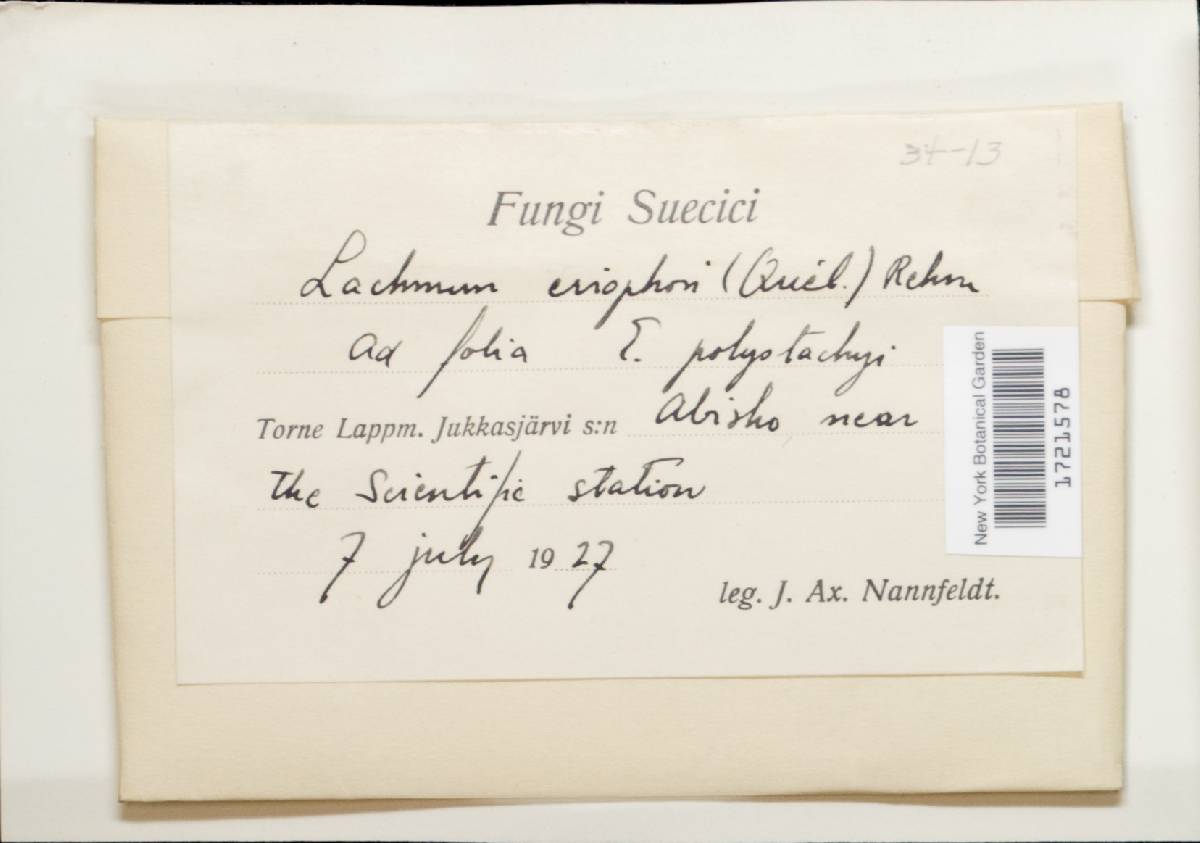 34-13
Fungi Suecici
Lachnum eriophori (Quél.) Rehm
ad folia E. polystachyi
Torne Lappm. Jukkasjärvi s:n Abisko near
the Scientific station
7 july 1927
leg. J. Ax. Nannfeldt.
New York Botanical Garden
1721578